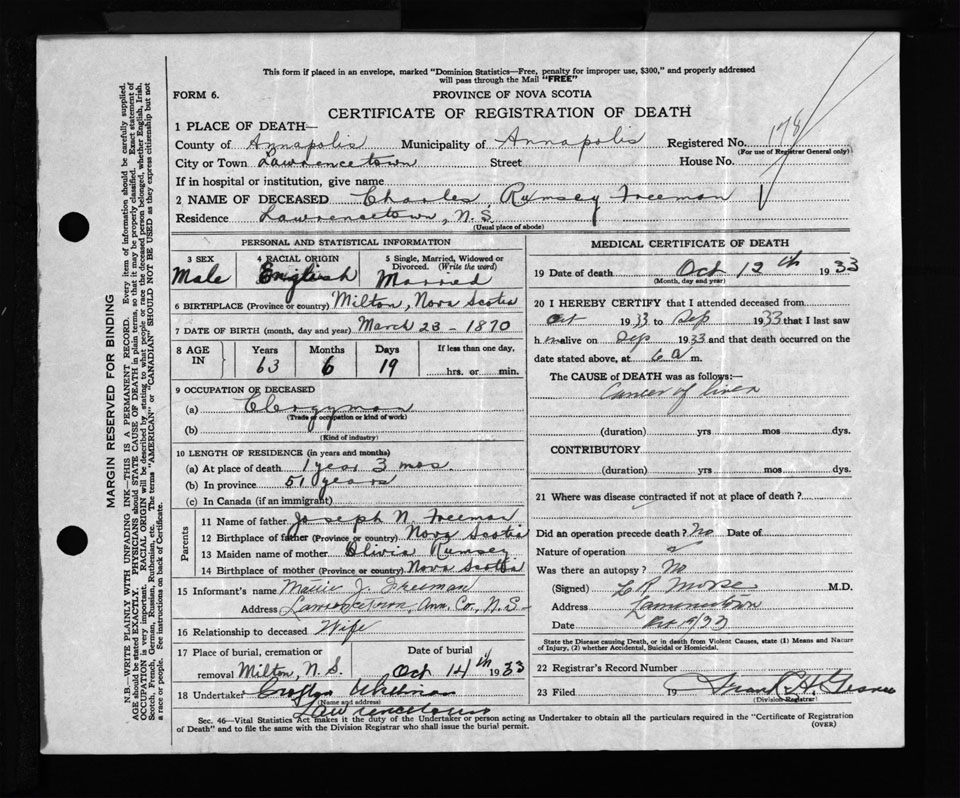 This form if placed in an envelope, marked "Dominion Statistics—Free, penalty for improper use, $300," and properly addressed
will pass through the Mail "FREE"
FORM 6.
PROVINCE OF NOVA SCOTIA
CERTIFICATE OF REGISTRATION OF DEATH
1 PLACE OF DEATH—
County of Annapolis Municipality of Annapolis Registered No. 178
(For use of Registrar General only)
City or Town Lawrencetown Street House No.
If in hospital or institution, give name
2 NAME OF DECEASED Charles Rumsey Freeman
Residence Lawrencetown, N.S.
(Usual place of abode)
PERSONAL AND STATISTICAL INFORMATION
3 SEX
Male
4 RACIAL ORIGIN
English
5 Single, Married, Widowed or
Divorced. (Write the word)
Married
6 BIRTHPLACE (Province or country) Milton, Nova Scotia
7 DATE OF BIRTH (month, day and year) March 23 - 1870
8 AGE
IN
Years
63
Months
6
Days
19
If less than one day,
hrs. or min.
9 OCCUPATION OF DECEASED
(a) Clergyman
(Trade or occupation or kind of work)
(b)
(Kind of industry)
10 LENGTH OF RESIDENCE (in years and months)
(a) At place of death 1 year 3 mos.
(b) In province 51 years
(c) In Canada (if an immigrant)
Parents
11 Name of father Joseph N. Freeman
12 Birthplace of father (Province or country) Nova Scotia
13 Maiden name of mother Olivia Rumsey
14 Birthplace of mother (Province or country) Nova Scotia
15 Informant's name J. Freeman
Address Lawrencetown, Ann. Co., N.S.
16 Relationship to deceased Wife
17 Place of burial, cremation or
removal Milton, N.S.
Date of burial
Oct 14th 1933
18 Undertaker Crofton Whitman
(Name and address)
Lawrencetown
MEDICAL CERTIFICATE OF DEATH
19 Date of death Oct 12th 1933
(Month, day and year)
20 I HEREBY CERTIFY that I attended deceased from
Oct 1933 to Sep 1933 that I last saw
h m alive on Sep 1933 and that death occurred on the
date stated above, at 6 a m.
The CAUSE of DEATH was as follows:—
Cancer of liver
(duration) yrs mos dys.
CONTRIBUTORY
(duration) yrs mos dys.
21 Where was disease contracted if not at place of death?
Did an operation precede death? No Date of
Nature of operation
Was there an autopsy? No
(Signed) Morse M.D.
Address Lawrencetown
Date
State the Disease causing Death, or in death from Violent Causes, state (1) Means and Nature
of Injury, (2) whether Accidental, Suicidal or Homicidal.
22 Registrar's Record Number
23 Filed 19 Frank H. Gesner
(Division Registrar)
Sec. 46—Vital Statistics Act makes it the duty of the Undertaker or person acting as Undertaker to obtain all the particulars required in the "Certificate of Registration
of Death" and to file the same with the Division Registrar who shall issue the burial permit.
(OVER)
MARGIN RESERVED FOR BINDING
N.B.—WRITE PLAINLY WITH UNFADING INK—THIS IS A PERMANENT RECORD. Every item of information should be carefully supplied.
AGE should be stated EXACTLY. PHYSICIANS should STATE CAUSE OF DEATH in plain terms, so that it may be properly classified. Exact statement of
OCCUPATION is very important. RACIAL ORIGIN will be described by stating to what people or race the deceased person belonged, whether English, Irish,
Scotch, French, German, Russian, Ruthenian, etc. The terms "AMERICAN" or "CANADIAN" SHOULD NOT BE USED as they express citizenship but not
a race or people. See instructions on back of Certificate.